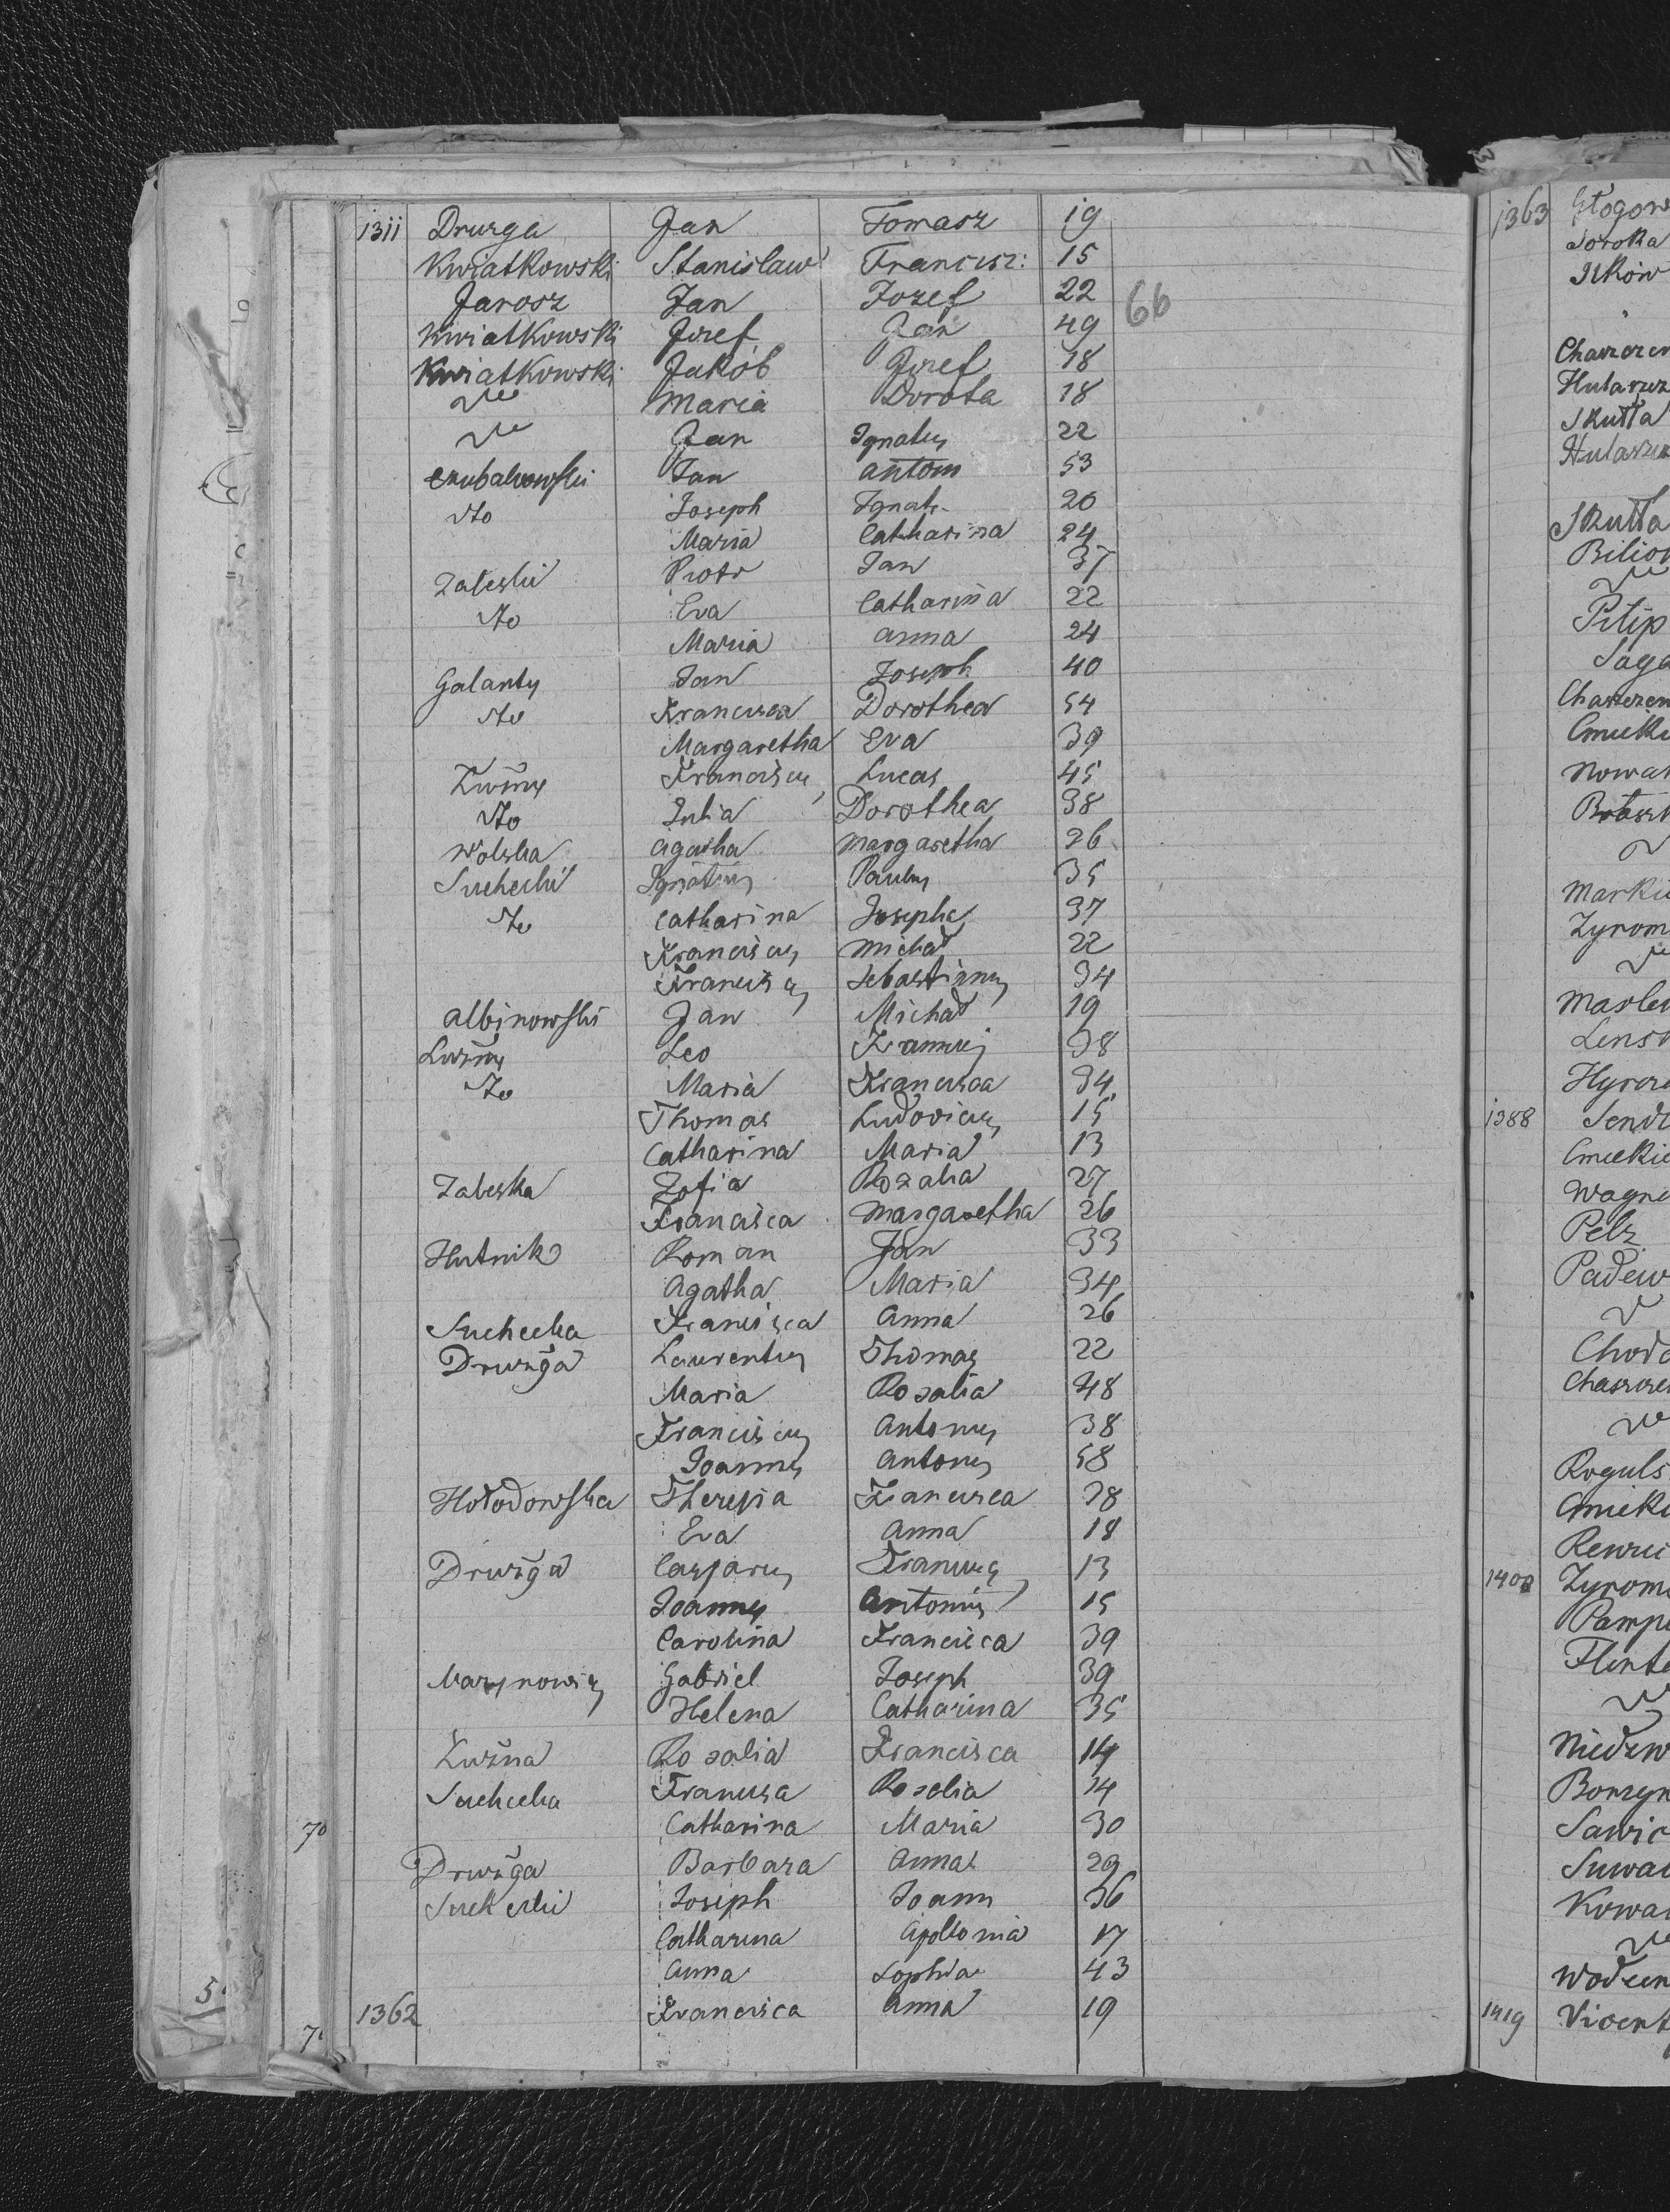 1311 Drurga Jan Tomasz 19
Kwiatkowski Stanisław Francisz: 15
Jarosz Jan Jozef 22
66
Kwiatkowski Jozef Jan 49
Kwiatkowski Jakób Jozef 18
Maria Dorota 18
Jan Ignatus 22
Jan antom 53
dto Joseph Ignat. 20
Maria Catharina 24
Zaleski Piotr Jan 37
dto Eva Catharina 22
Maria anna 24
Galanty Jan Joseph 40
dto Francisca Dorothea 54
Margaretha Eva 39
Luźny Franciscus Lucas 45
dto Julia Dorothea 38
Wolska agatha Margaretha 26
Suchecki Ignatius Paulus 35
dto Catharina Josepha 37
Franciscus Michał 22
Franciscus Sebastianus 34
albinowski Jan Michał 19
Luźny Leo 38
dto Maria Francisca 34
Thomas Ludovicus 15
Catharina Maria 13
Zaleska Zofia Rozalia 27
Francisca Margaretha 26
Hutnik Roman Jan 33
Agatha Maria 34
Suchecka Francisca anna 26
Drurga Laurentius Thomas 22
Maria Rosalia 48
Franciscus Antonius 38
Joannes Antonius 58
Hołodowska Theresia Francisca 38
Eva anna 18
Drurga Casparus Franciscus 13
Joannes Antonius 15
Carolina Francisca 39
Gabriel Joseph 39
Helena Catharina 35
Luźna Rosalia Francisca 14
Suchecka Francisca Rosalia 14
70 Catharina Maria 30
Drurga Barbara anna 29
Suchecki Joseph Joann 36
Catharina apolonia 17
anna Sophia 43
1362 Francisca anna 19
5
1363 Głogow
Soroka
Ilków
Charzen
Hularuz
Skutta
Skutta
Bilion
Pilip
Saga
Nowak
Markie
Zyrom
Lensk
1388
Wagne
Pelz
Padew
Chod
Roguls
1400 Zyrom
Pamp
Flinte
Niedzw
Sawic
Suwa
Kowa
1419 Vicent